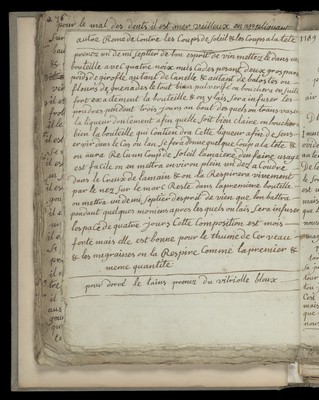 pour le mal des dents il est mer veilleux en apliquant
autre Reme de Contre les Coups de Soleil & les Coups a la tete
prenez un de mi septier de bon esprit de vin mettez le dans une
bouteille avec quatre noix muscades pesant deux gros pareil
poids de girofle autant de Canelle & autant de balostes ou
fleurs de grenades le tout bien pulverisé on bouchera en suite
fort exactement la bouteille & on y laissera infuser les
poudres pendant trois jours au bout des quels on tirera
la liqueur doulcement afin quelle soit bien claire on bouchera
bien la bouteille qui Contien dra Cette liqueur afin de sen
servir dans le Cas ou lon se sera donné quelque Coup a la tête &
ou aura Recu un Coup de Soleil la maniere den faire usage
est facile on en mettra environ plein un dez a Coudre
dans le Creux de la main & on la Respirera vivement
par le nez sur le marc Resté dans la premiere bouteille
on mettra un de mi Septier desprit de vin que lon battra
pendant quelques momens apres les quels on laissera infuser
lespace de quatre jours Cette Composition est mois
forte mais elle est bonne pour le rhume de Cerveau
& les migraines on la Respire Comme la premiere &
meme quantité
pour doré le laius prenez du vitriolle bleux